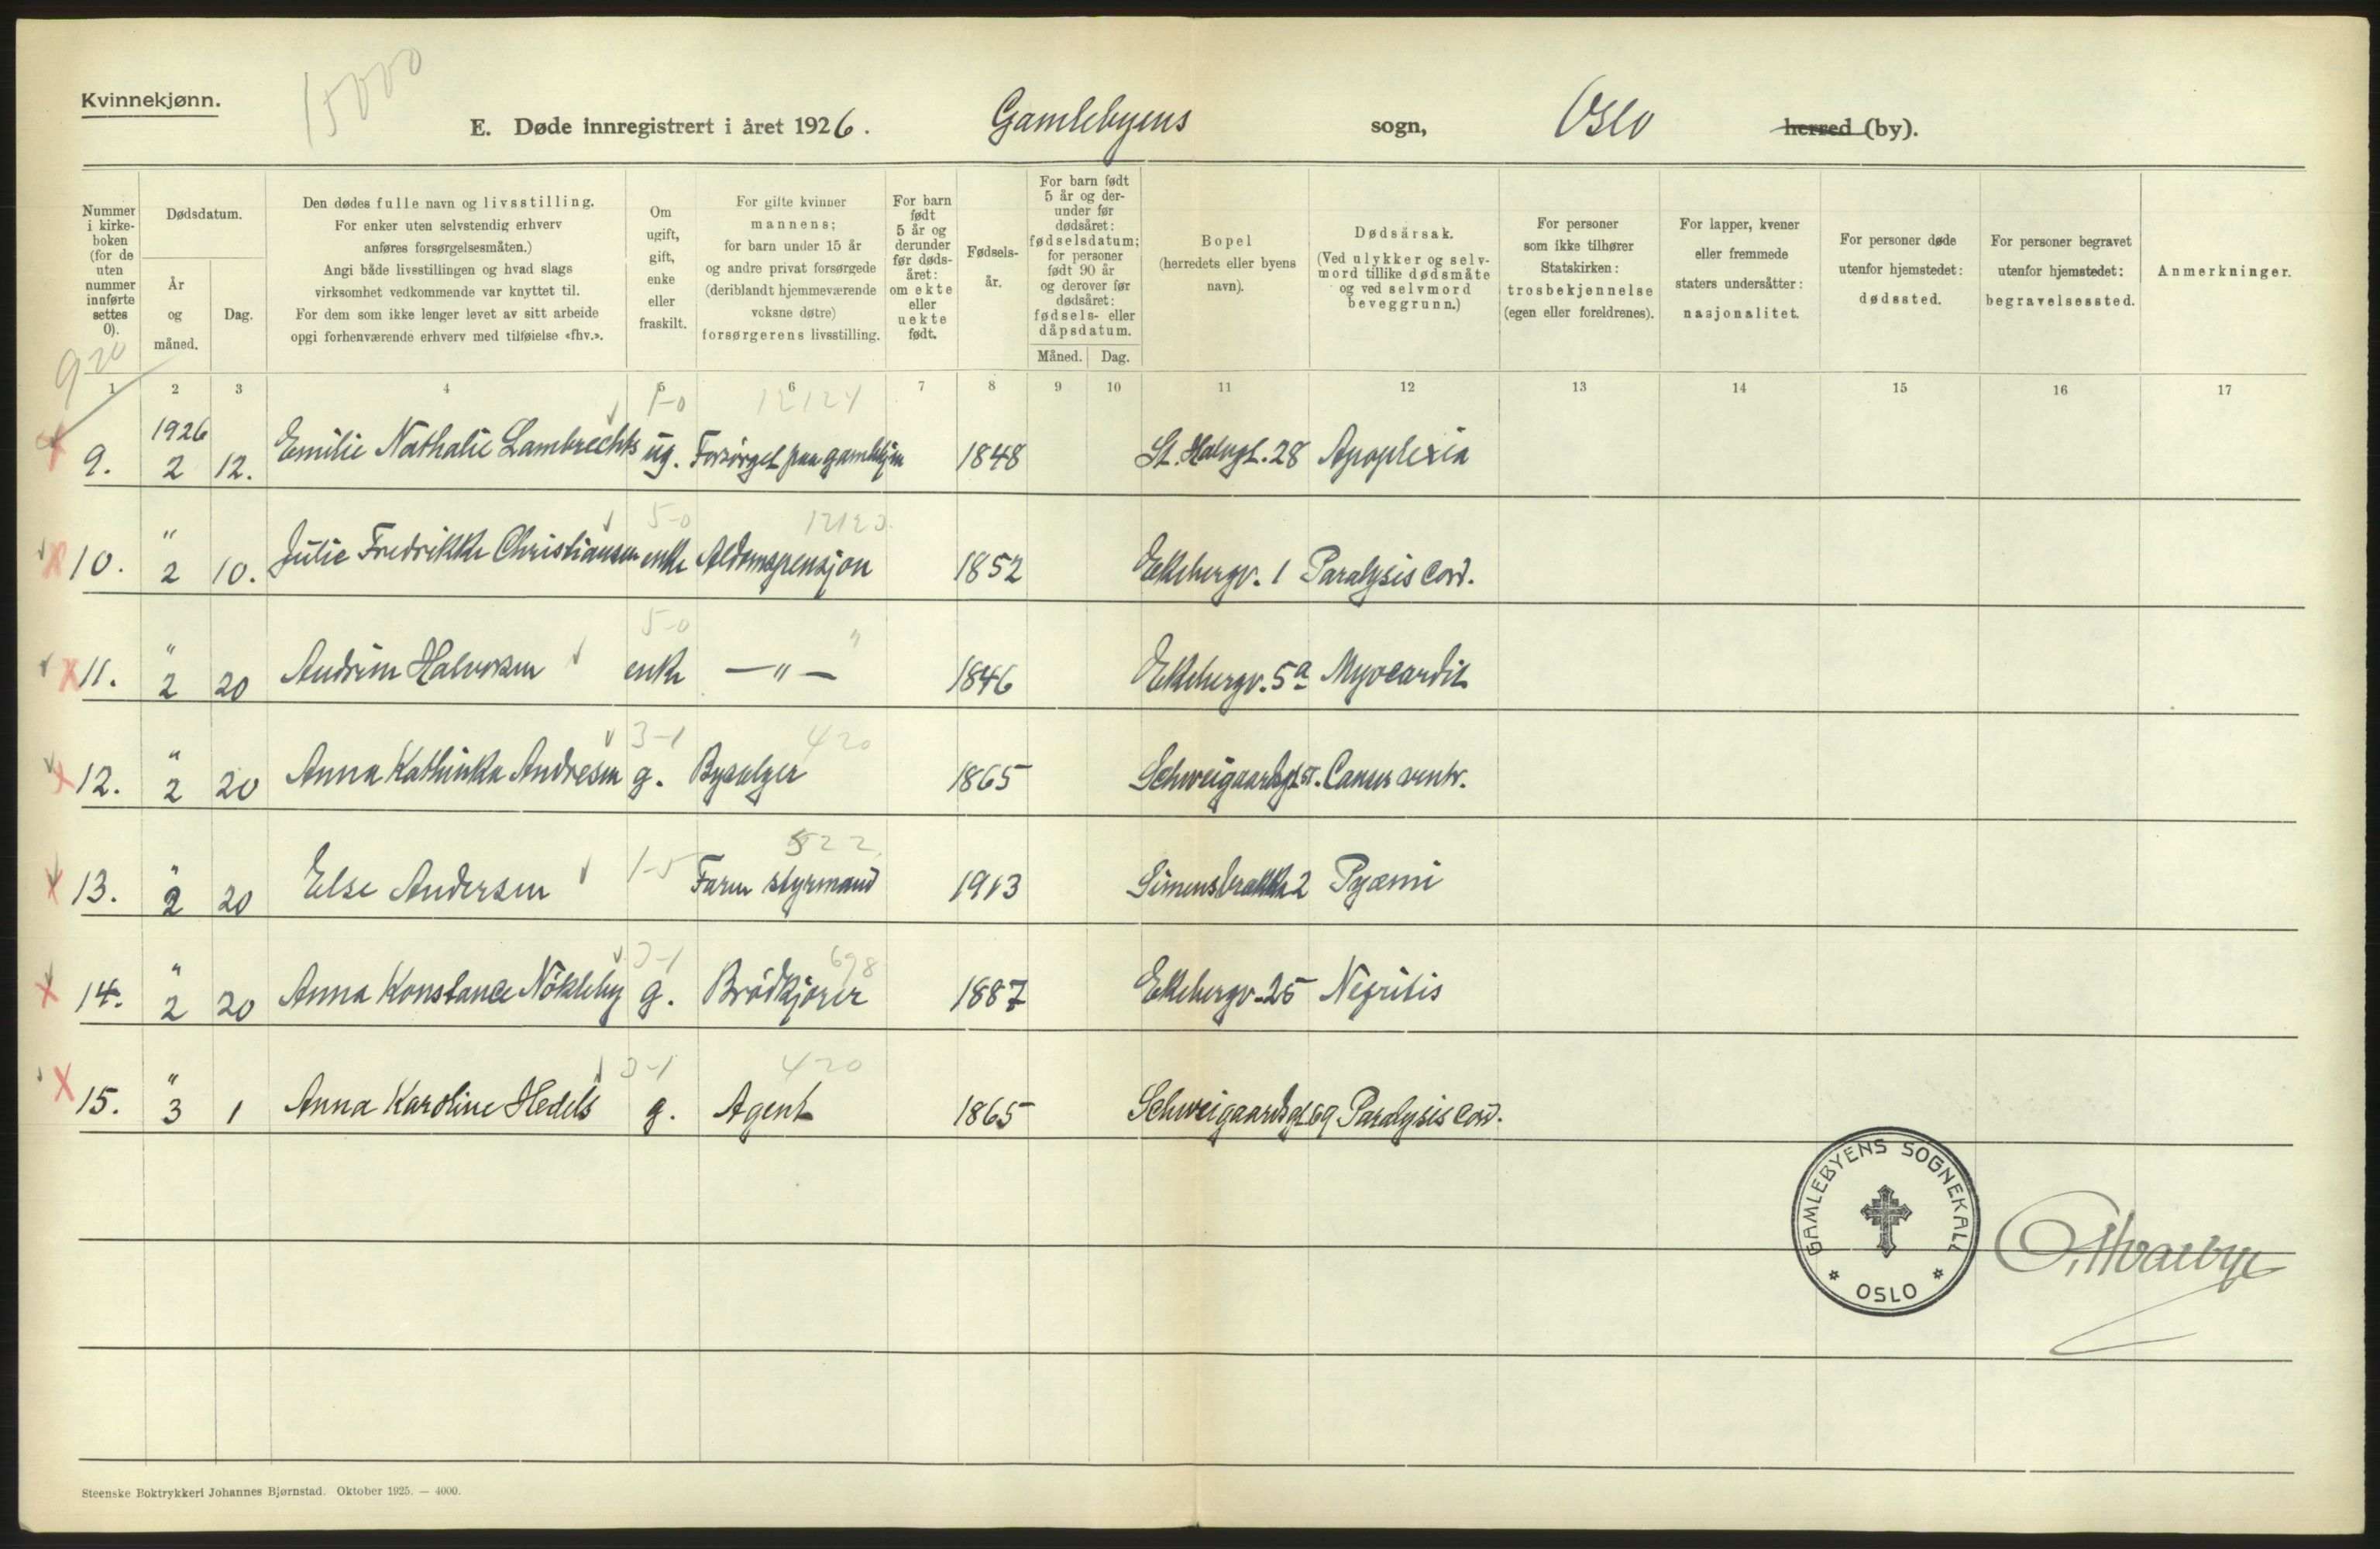 Kvinnekjønn.
15000
E. Døde innregistrert i året 1926. Gamlebyens sogn, Oslo herred (by).
Nummer i kirke-boken (for de uten nummer innførte settes 0).
Dødsdatum.
År og måned.
Dag.
Den dødes fulle navn og livsstilling.
For enker uten selvstendig erhverv
anføres forsørgelsesmåten.)
Angi både livsstillingen og hvad slags
virksomhet vedkommende var knyttet til.
For dem som ikke lenger levet av sitt arbeide
opgi forhenværende erhverv med tilføielse «fhv.».
Om ugift, gift, enke eller fraskilt.
For gifte kvinner
mannens;
for barn under 15 år
og andre privat forsørgede
(deriblandt hjemmeværende
voksne døtre)
forsørgerens livsstilling.
For barn født 5 år og derunder før døds-året: om ekte eller uekte født.
Fødsels-år.
For barn født 5 år og der-under før dødsåret: fødselsdatum; for personer født 90 år og derover før dødsåret: fødsels- eller dåpsdatum.
Måned. Dag.
Bopel
(herredets eller byens
navn).
Dødsårsak.
(Ved ulykker og selv-
mord tillike dødsmåte
og ved selvmord
beveggrunn.)
For personer
som ikke tilhører
Statskirken:
trosbekjennelse
(egen eller foreldrenes).
For lapper, kvener
eller fremmede
staters undersåtter:
nasjonalitet.
For personer døde
utenfor hjemstedet:
dødssted.
For personer begravet
utenfor hjemstedet:
begravelsessted.
Anmerkninger.
920
1 2 3 4 5 6 7 8 9 10 11 12 13 14 15 16 17
1-0 12124
9. 1926 2 12. Emilie Nathalie Lambrechts ug. Forsörget paa gamlehjem 1848 St. Halvgt. 28 Apoplexia
5-0 12120
10. " 2 10. Julie Fredrikke Christiansen enke Alderspensjon 1852 Ekebergv. 1 Paralysis cord.
5-0 "
11. " 2 20 Andrine Halvorsen enke — " — 1846 Ekebergv. 5a Myocardit
3-1 420
12. " 2 20 Anna Kathinka Andresen g. Byselger 1865 Schweigaardsgt Cancer ventr.
1-5 522
13. " 2 20 Else Andersen Faren styrmand 1913 Simensbrakke 2 Pyæmi
3-1 698
14. " 2 20 Anna Konstance Nökleby g. Brödkjører 1887 Ekebergv. 25 Nefritis
3-1 420
15. " 3 1 Anna Karoline Hedels g. Agent 1865 Schweigaardsgt 69 Paralysis cord.
GAMLEBYENS SOGNEKALL
OSLO
Steenske Boktrykkeri Johannes Bjørnstad. Oktober 1925. — 4000.